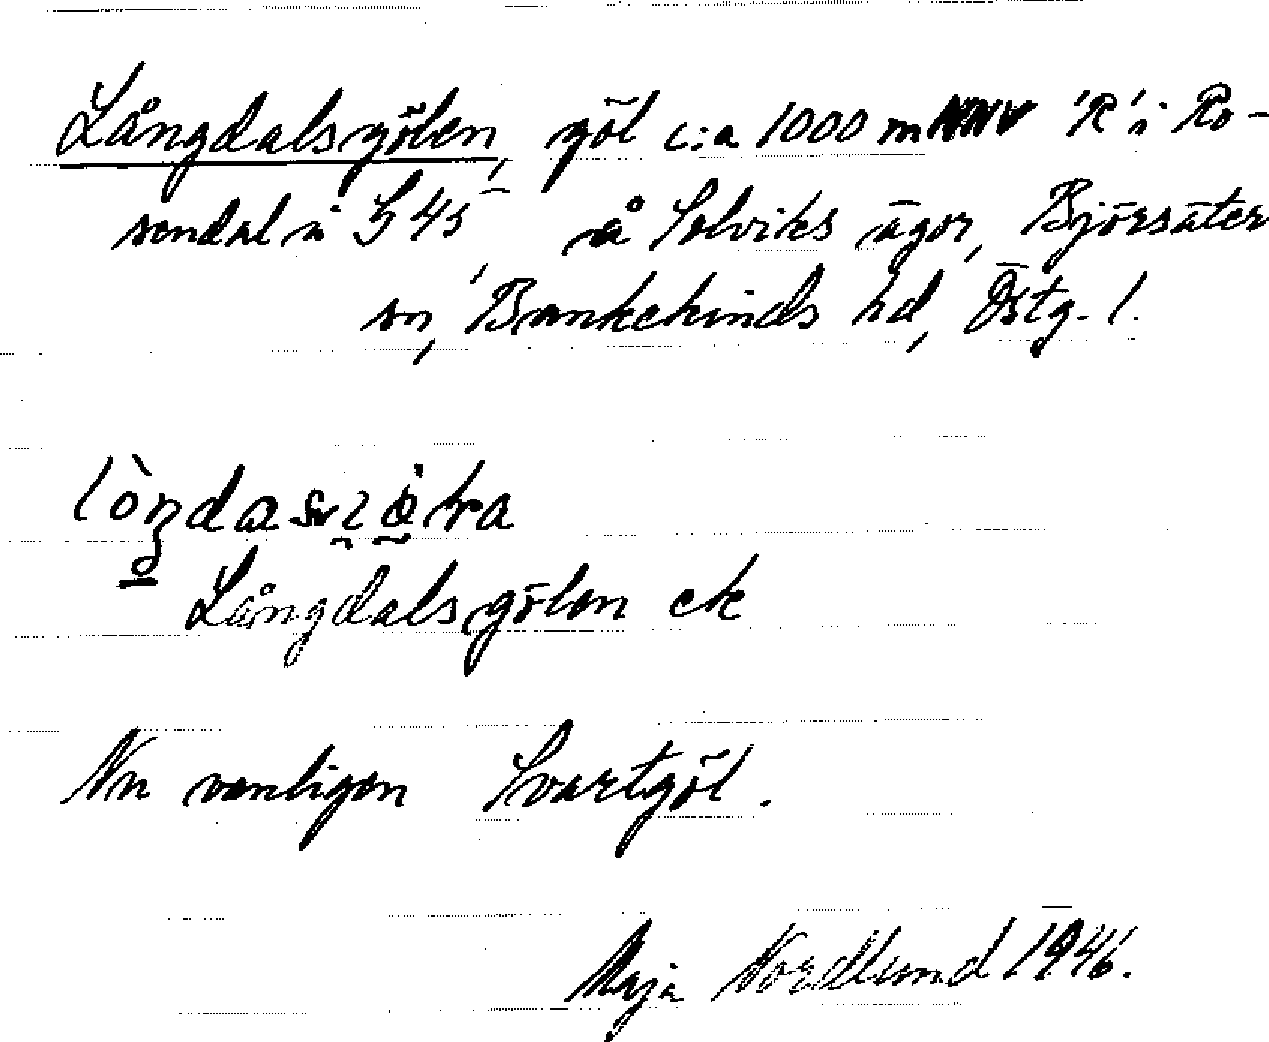 Långdalsgölen, göl c:a 1000 m NNV 'R' i Ro-
sendal i G 45 å Solviks ägor, Björsäter
sn, Bankekinds hd, Östg. l.
Långdalsgölen ek
Nu vanligen Svartgöl.
Maja Nordlund 1946.